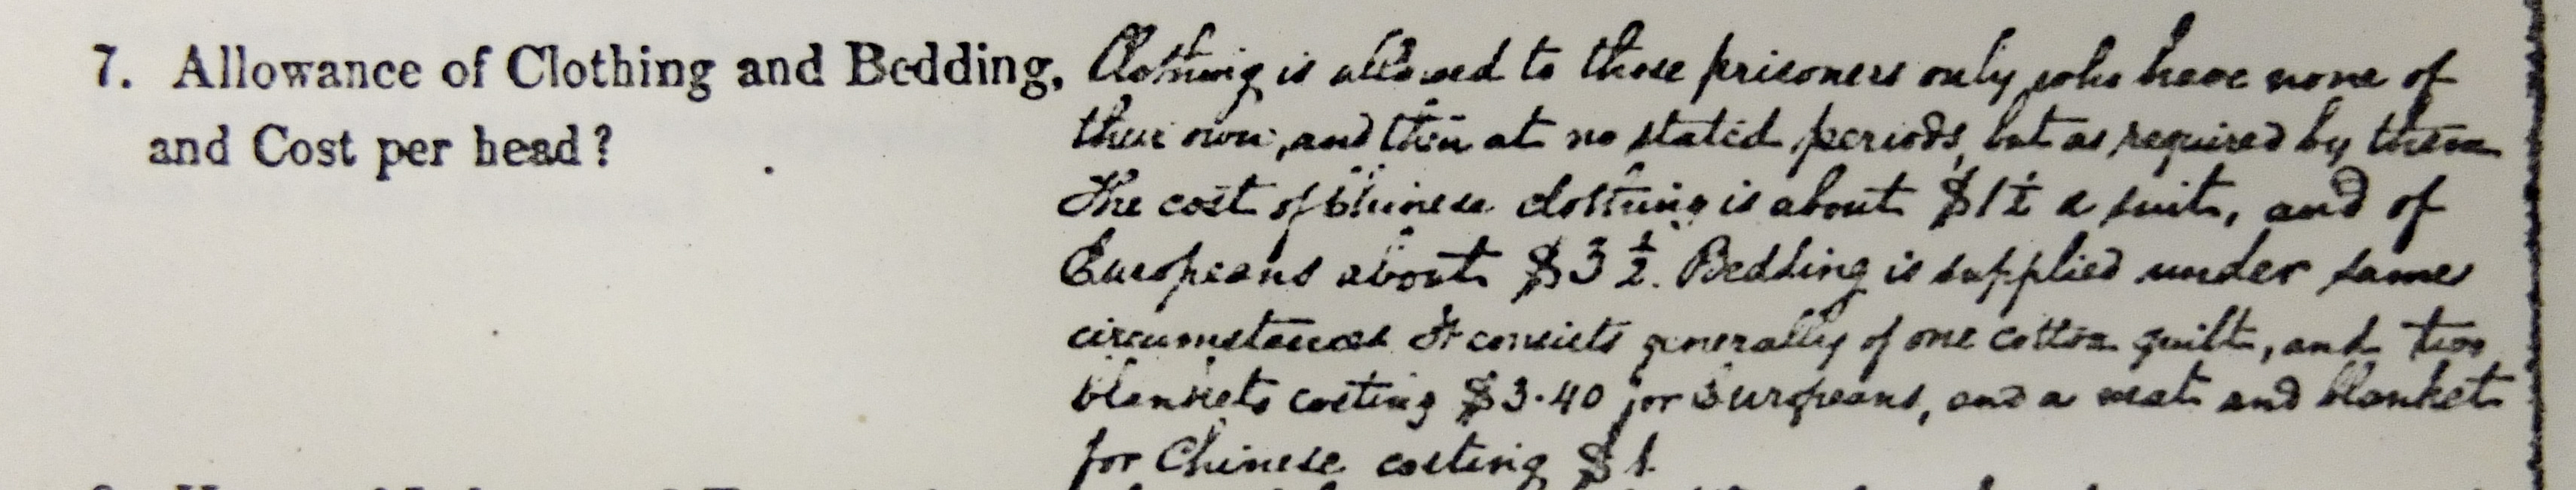 7. Allowance of Clothing and Bedding,
and Cost per head?
Clothing is allowed to those prisoners only who have none of
their own, and then at no stated periods, but as required by them
The cost of Chinese clothing is about $1½ a suit, and of
Europeans about $3½. Bedding is supplied under same
circumstances It consists generally of one cotton quilt, and two
blankets costing $3.40 for Europeans, and a mat and blanket
for Chinese costing $1.